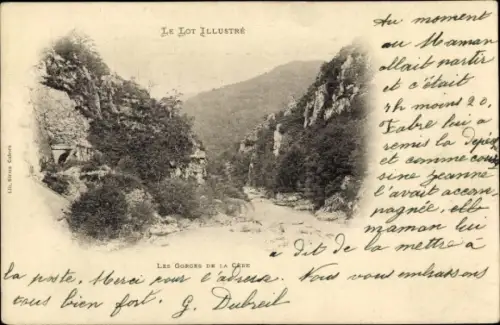 LE LOT ILLUSTRÉ
Au moment
où Maman
allait partir
et c'était
7h moins 20,
Fabre lui a
remis la dépê
et comme cou
sine Jeanne
l'avait accom
pagnée, elle
maman lui
a dit de la mettre à
LES GORGES DE LA CÈRE
la poste. Merci pour l'adresse. Nous vous embrassons
tous bien fort. G. Dubreil